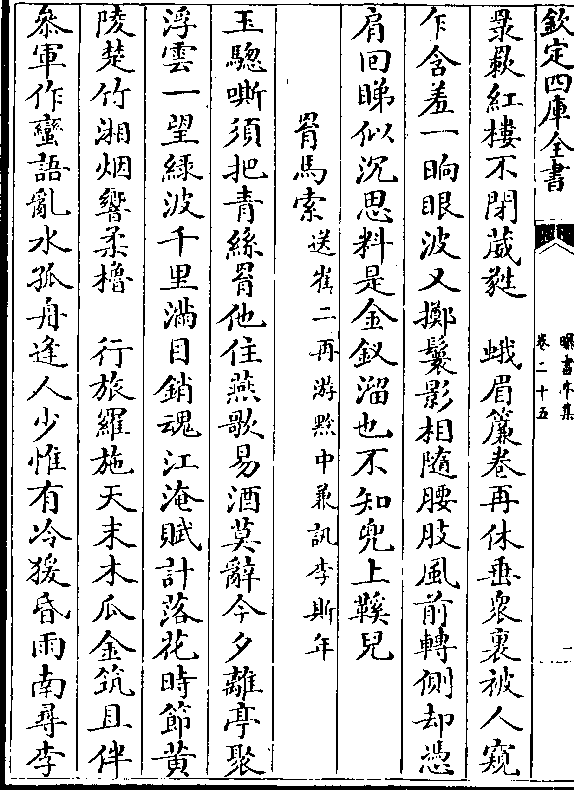 欽定四庫全書
曝書亭集
卷二十五
紅樓不閉葳蕤　蛾眉簾卷再休垂衆裏被人窺
乍含羞一晌眼波又擲鬟影相隨腰肢風前轉側却憑
肩回睇似沉思料是金釵溜也不知兜上鞵兒
罥馬索 送崔二再游黔中兼訊李斯年
玉驄嘶須把青絲罥他住燕歌易酒莫辭今夕離亭聚
浮雲一望緑波千里滿目銷魂江淹賦計落花時節黄
陵楚竹湘烟響柔櫓　行旅羅施天末木瓜金筑且伴
叅軍作蠻語亂水孤舟逢人少惟有冷猨昏雨南尋李